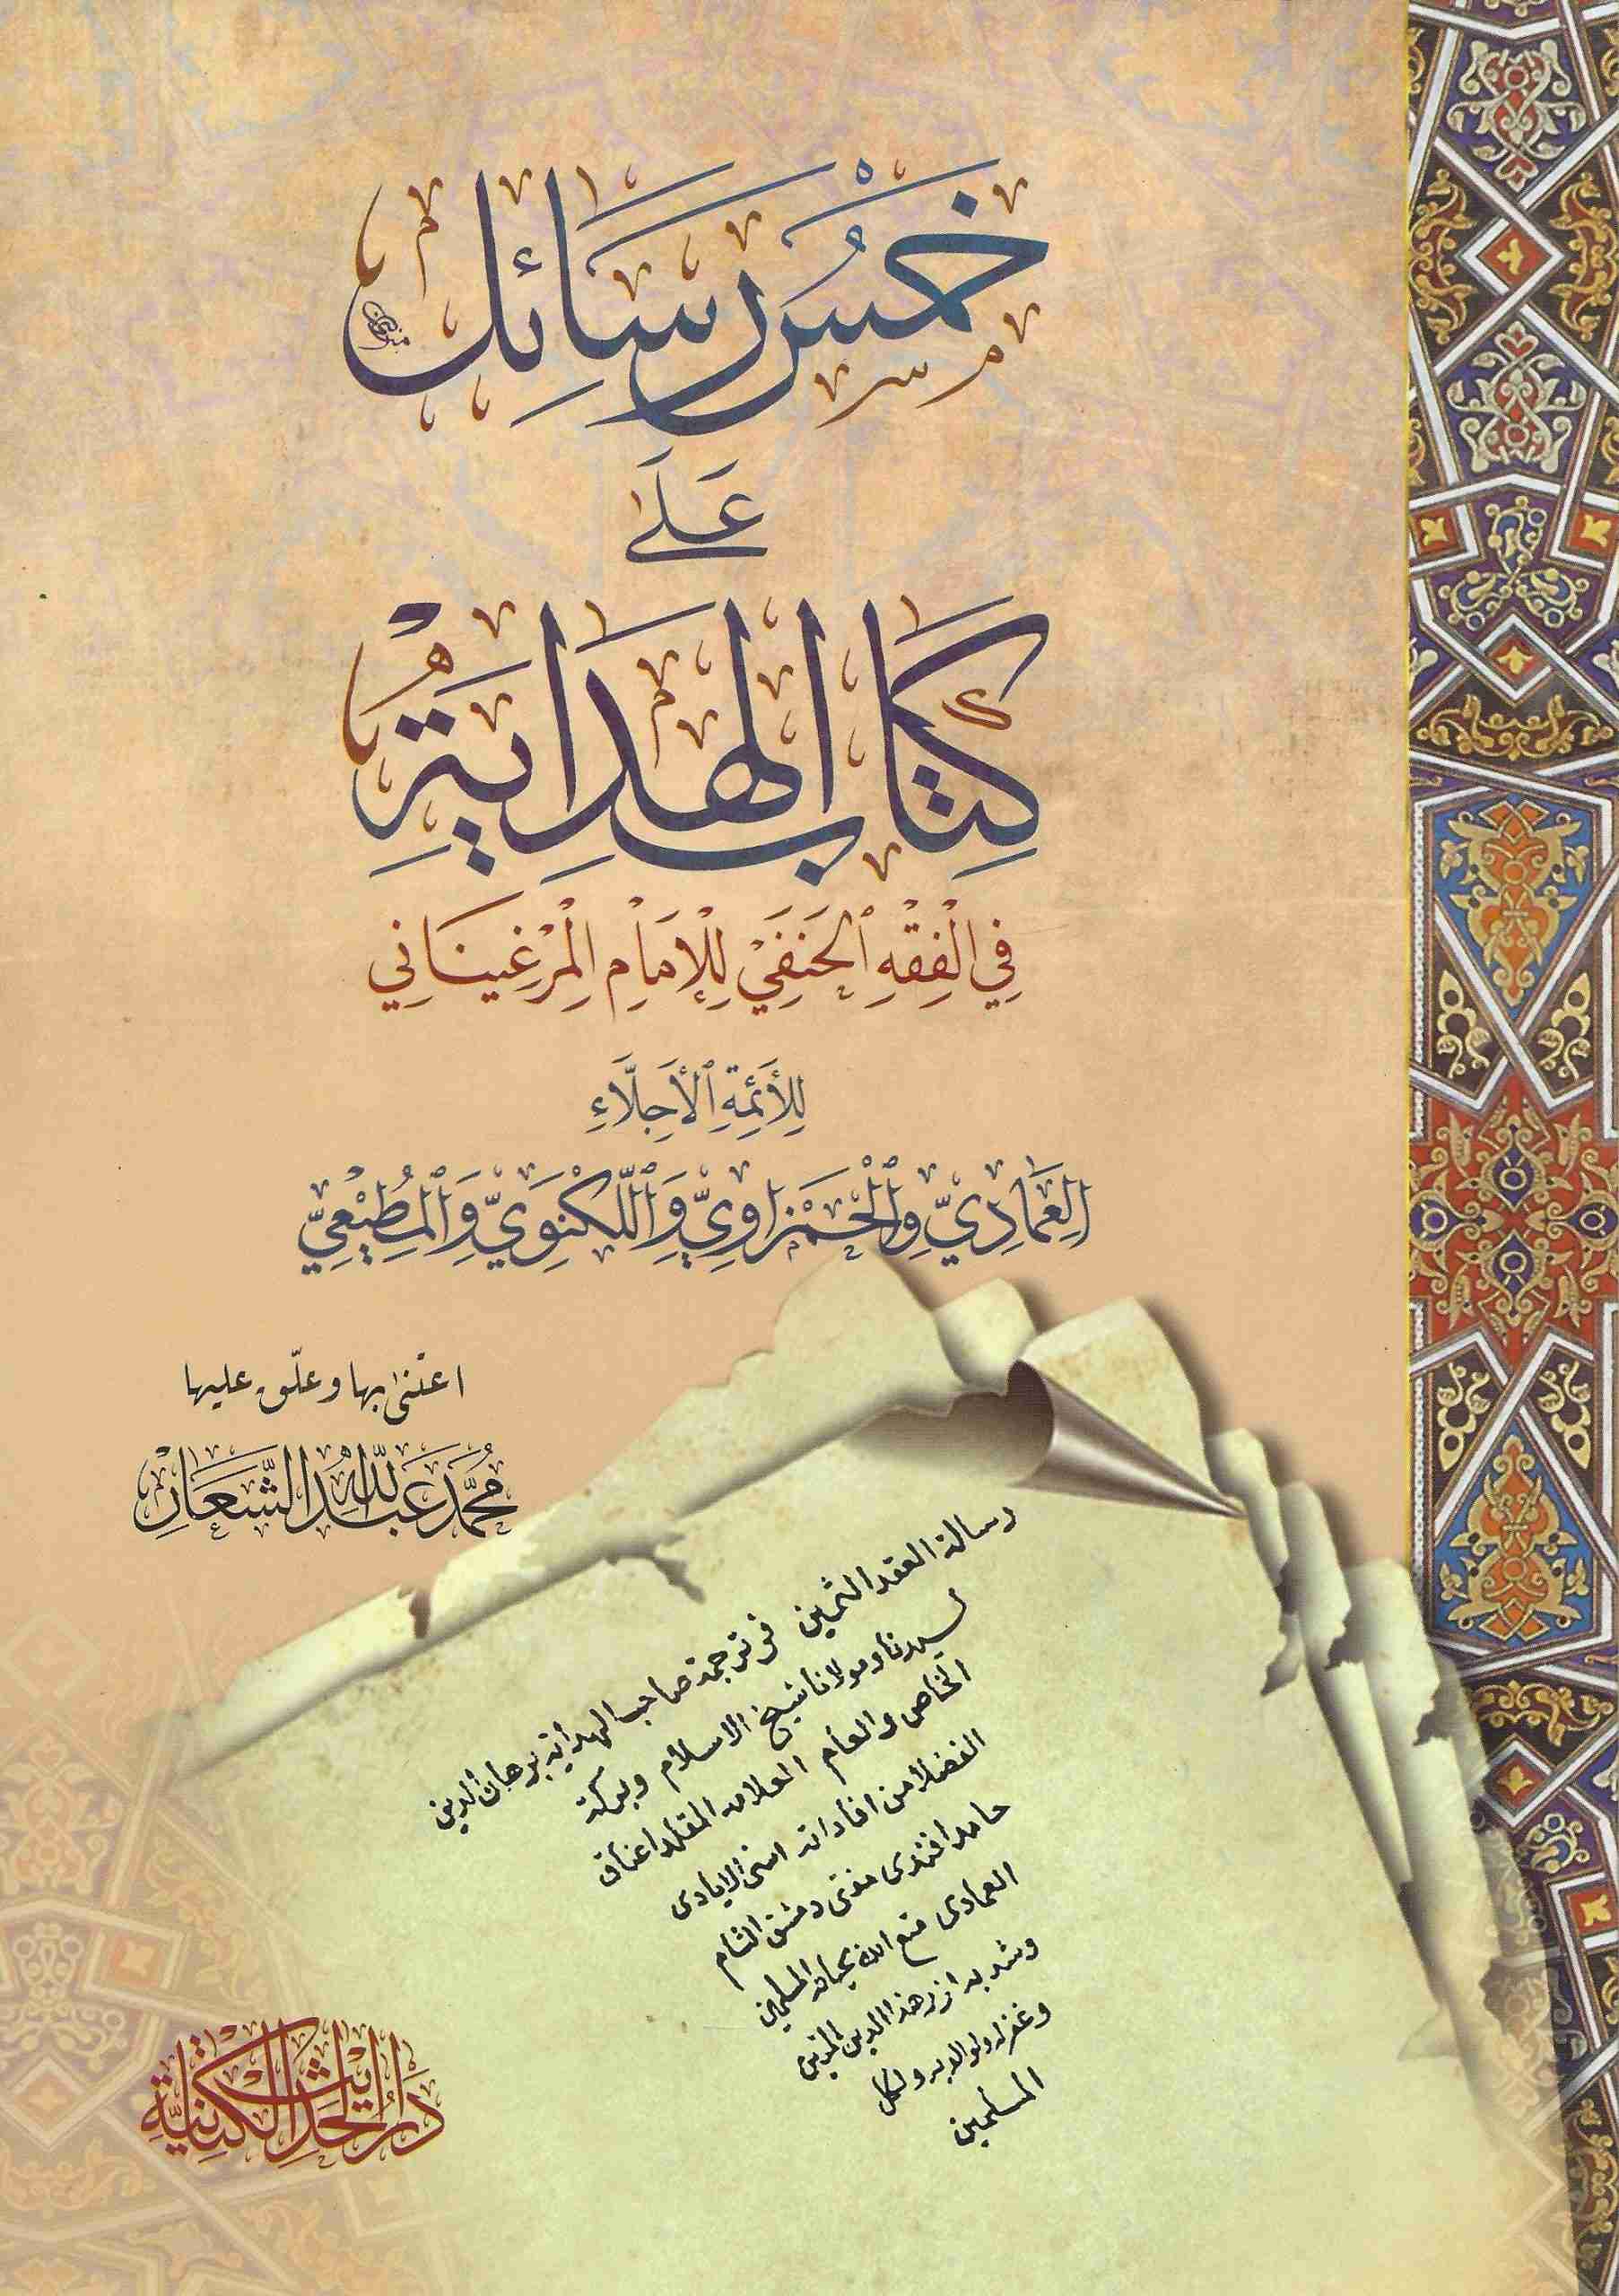 خَمْسُ رَسَائِل
عَلَى
كِتَابِ الْهِدَايَةِ
فِي الْفِقْهِ الْحَنَفِيِّ لِلْإِمَامِ الْمَرْغِينَانِي
لِلْأَئِمَّةِ الْأَجِلَّاءِ
الْعِمَادِيِّ وَالْحَمْزَاوِيِّ وَاللَّكْنَوِيِّ وَالْمُطِيعِيِّ
اعتنى بها وعلّق عليها
مُحَمَّد عَبْد اللَّه الشَّعَّار
رسالة العقد الثمين في ترجمة صاحب الهداية برهان الدين
لسيدنا ومولانا شيخ الاسلام وبركة
الخاص والعام العلامة المقلد اعناق
الفضلا من افاداته اسنى الايادي
حامد افندى مفتى دمشق الشام
العمادى متع الله بحياته المسلمين
وشد به ازر هذا الدين المتين
وغفر له ولوالديه ولكل
المسلمين
دَارُ الْحَدِيثِ الْكِتَّانِيَّةِ